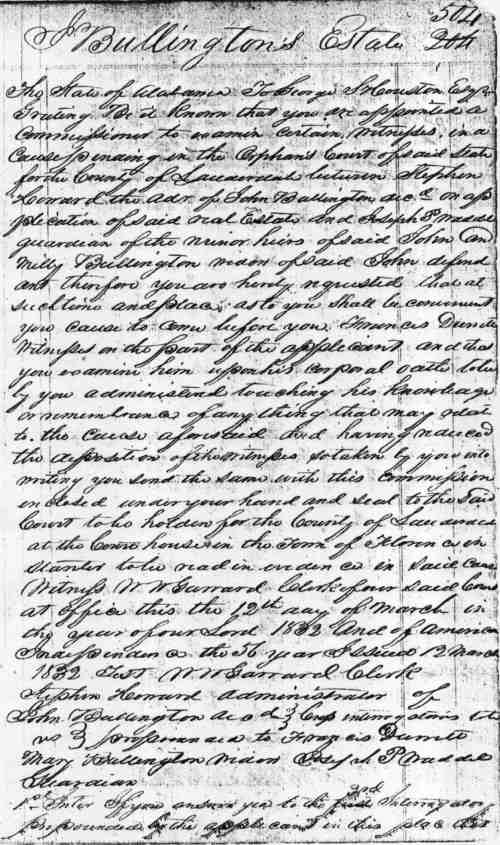 504
Jn Bullington's Estate 204
The State of Alabama To George S Houston Esqr
Greeting Be it Known that you are appointed a
Commissioner to examin Certain Witnesses in a
Cause pending in the Orphans Court of said State
for the County of Lauderdale between Stephen
Howard the Adr. of John Bullington decd on ap
plication of said real Estate and Joseph P Waddel
guardian of the minor heirs of said John and
Milly Bullington widow of said John defend
ant therefore you are hereby requested that at
such time and place as to you shall be convenient
you cause to come before you Francis Durrett
Witness on the part of the applicant and that
you examine him upon his corporal oath to be
by you administerd touching his knowledge
or remembrance of any thing that may relate
to the cause aforesaid And having reduced
the deposition of the witness so taken by you into
writing you send the same with this commission
inclosed under your hand and seal to the said
Court to be holden for the County of Lauderdale
at the Court house in the Town of Florence in
stanter to be read in evidence in said Cause
Witness W W Garrard Clerk of our said Court
at office this the 12th day of March in
the year of our Lord 1832 And of American
Independence the 56 year Issued 12 March
1832 Test W W Garrard Clerk
Stephen Howard Administrator of
John Bullington decd } Cross interrogatories to
vs } propounded to Francis Durrett
Mary Bullington widow Joseph P Waddel
Guardian
2nd
1st Inter If you answer yea to the first Interrogatory
propounded by the applicant in this